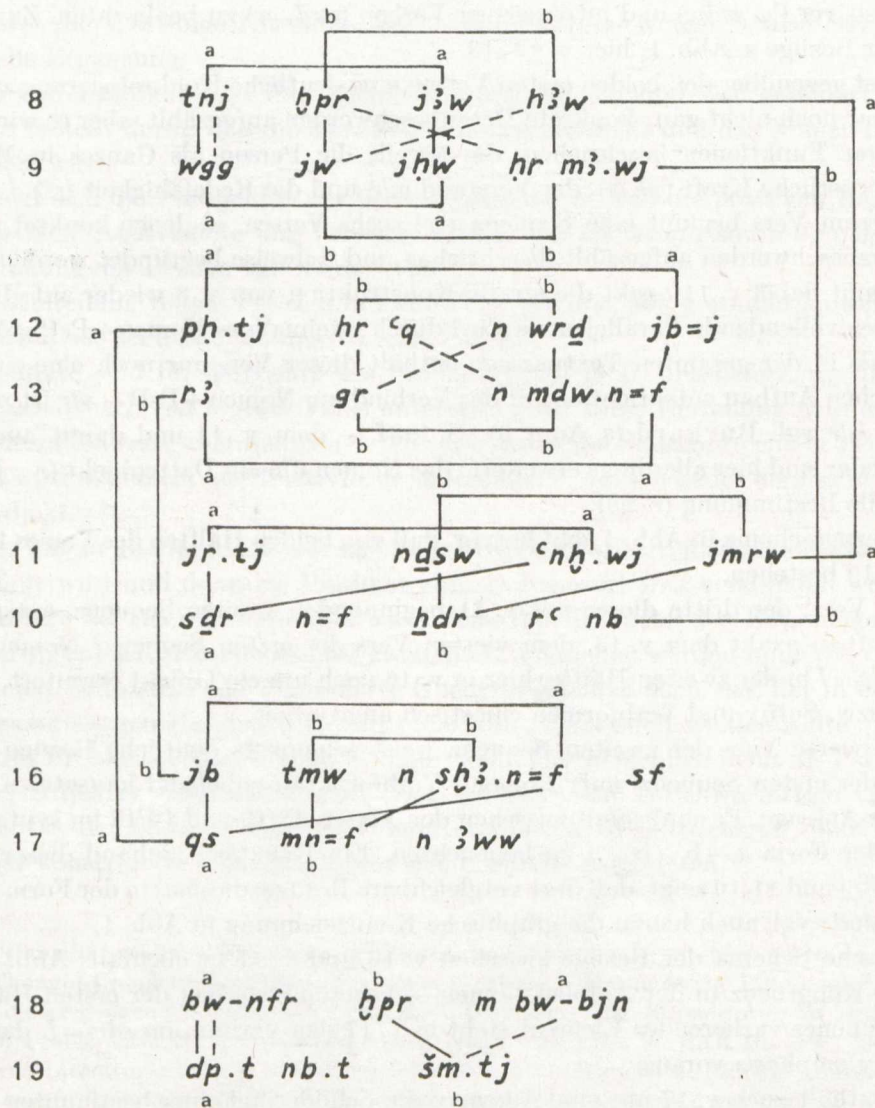 a b b
a
8 tnj ḫpr jꜣw hꜣw a
9 wgg jw jhw hr mꜣ.wj b
a a
b b
a a
b b
12 a pḥ.tj hr ꜥq n wrḏ jb=j
13 b rꜣ gr n mdw.n=f
b b
a a
b b
a a
11 jr.tj nḏsw ꜥnḫ.wj jmrw a
10 sḏr n=f ḫdr rꜥ nb b
a b
a a
b b
16 b jb tmw n sḫꜣ.n=f sf
17 a qs mn=f n ꜣww
a b
a b a
18 bw-nfr ḫpr m bw-bjn
19 dp.t nb.t šm.tj
a b